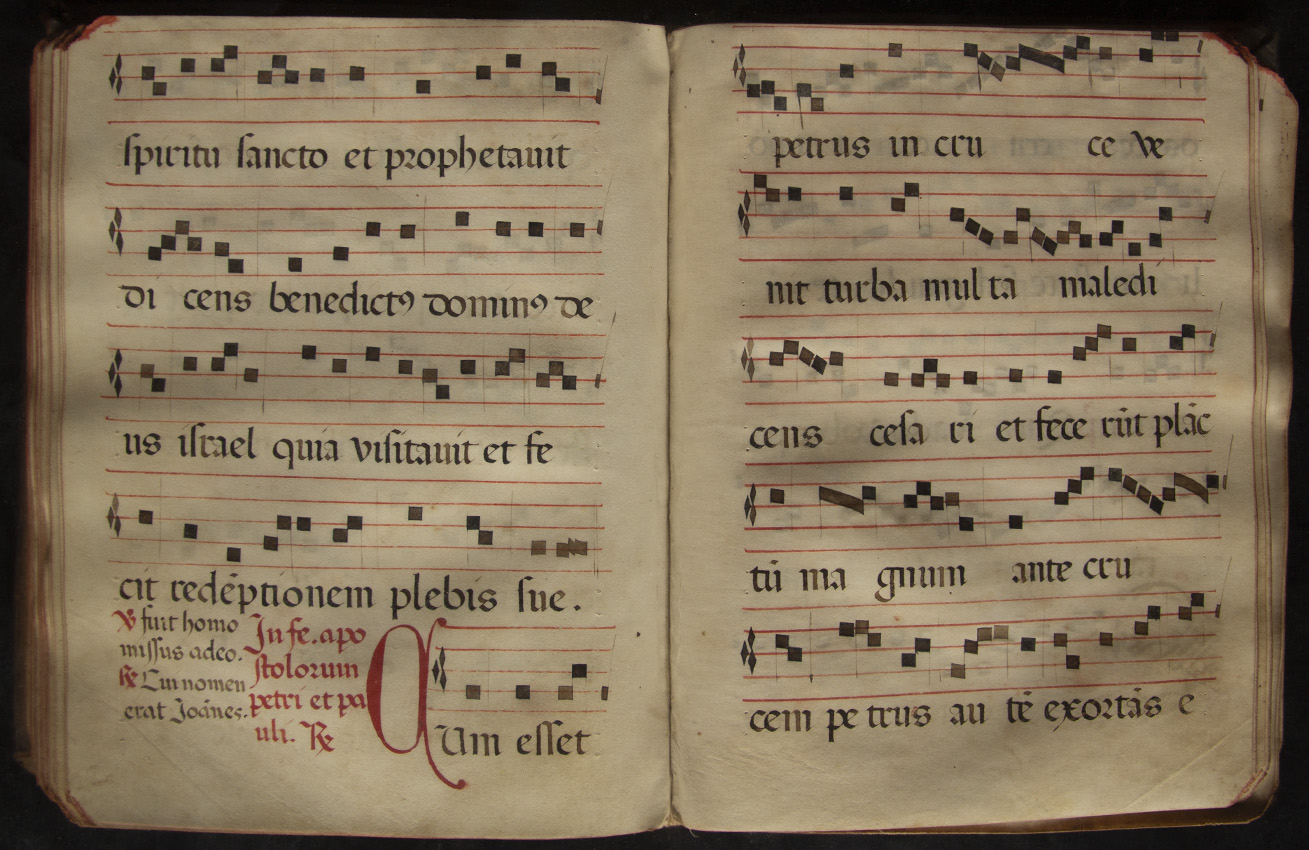 spiritu sancto et prophetauit
di cens benedictꝰ dominꝰ de
us israel quia visitauit et fe
cit redēptionem plebis sue.
℣ fuit homo
missus adeo.
℟ Cui nomen
erat Joānes.
In fe. apo
stolorum
petri et pa
uli. ℟
CUm esset
petrus in cru ce ve
nit turba mul ta maledi
cens cesa ri et fece rūt plāc
tū ma gnum ante cru
cem pe trus au tē exortās e